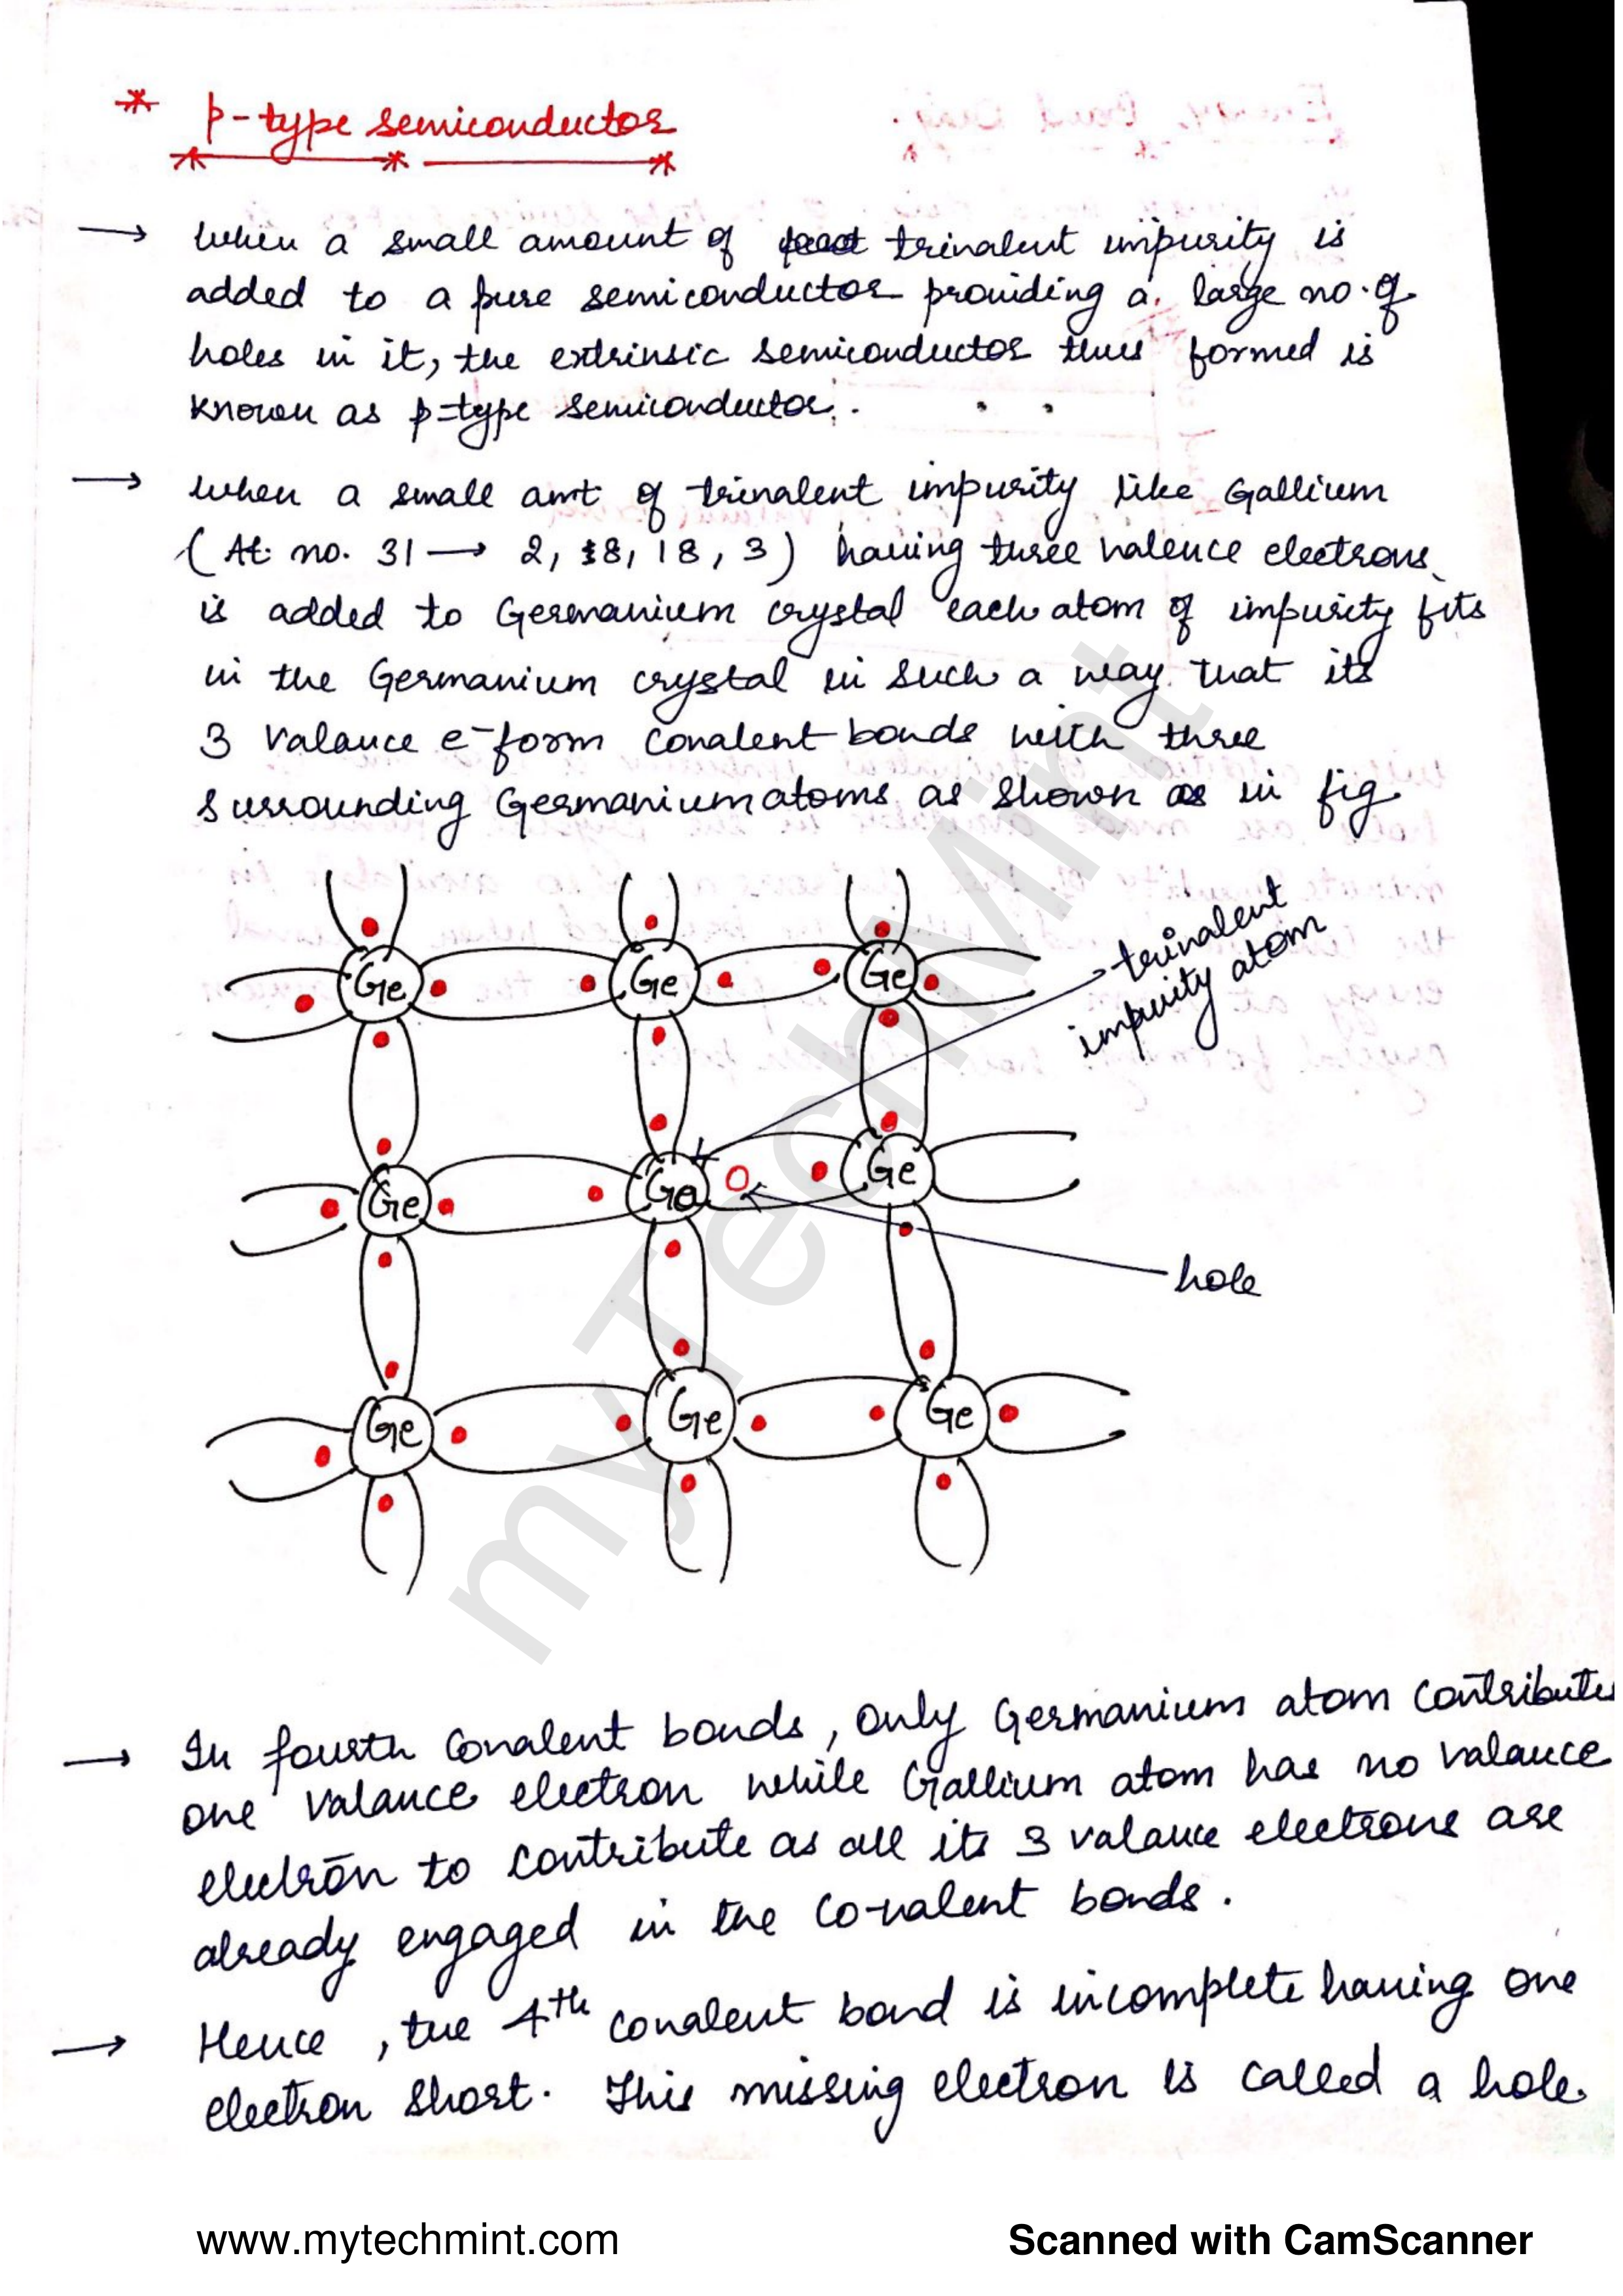 * p-type semiconductor
→ when a small amount of trivalent impurity is
added to a pure semiconductor providing a large no. of
holes in it, the extrinsic semiconductor thus formed is
known as p-type semiconductor.
→ when a small amt of trivalent impurity like Gallium
(At. no. 31 → 2, 8, 18, 3) having three valence electrons
is added to Germanium crystal each atom of impurity fits
in the Germanium crystal in such a way that its
3 valance e- form covalent bonds with three
surrounding Germanium atoms as shown as in fig
Ge Ge Ge
trivalent
impurity atom
Ge Ga Ge
hole
Ge Ge Ge
→ In fourth covalent bonds, only Germanium atom contributes
one valance electron while Gallium atom has no valance
electron to contribute as all its 3 valance electrons are
already engaged in the co-valent bonds.
→ Hence, the 4th covalent bond is incomplete having one
electron short. This missing electron is called a hole.
myTechMint
www.mytechmint.com
Scanned with CamScanner